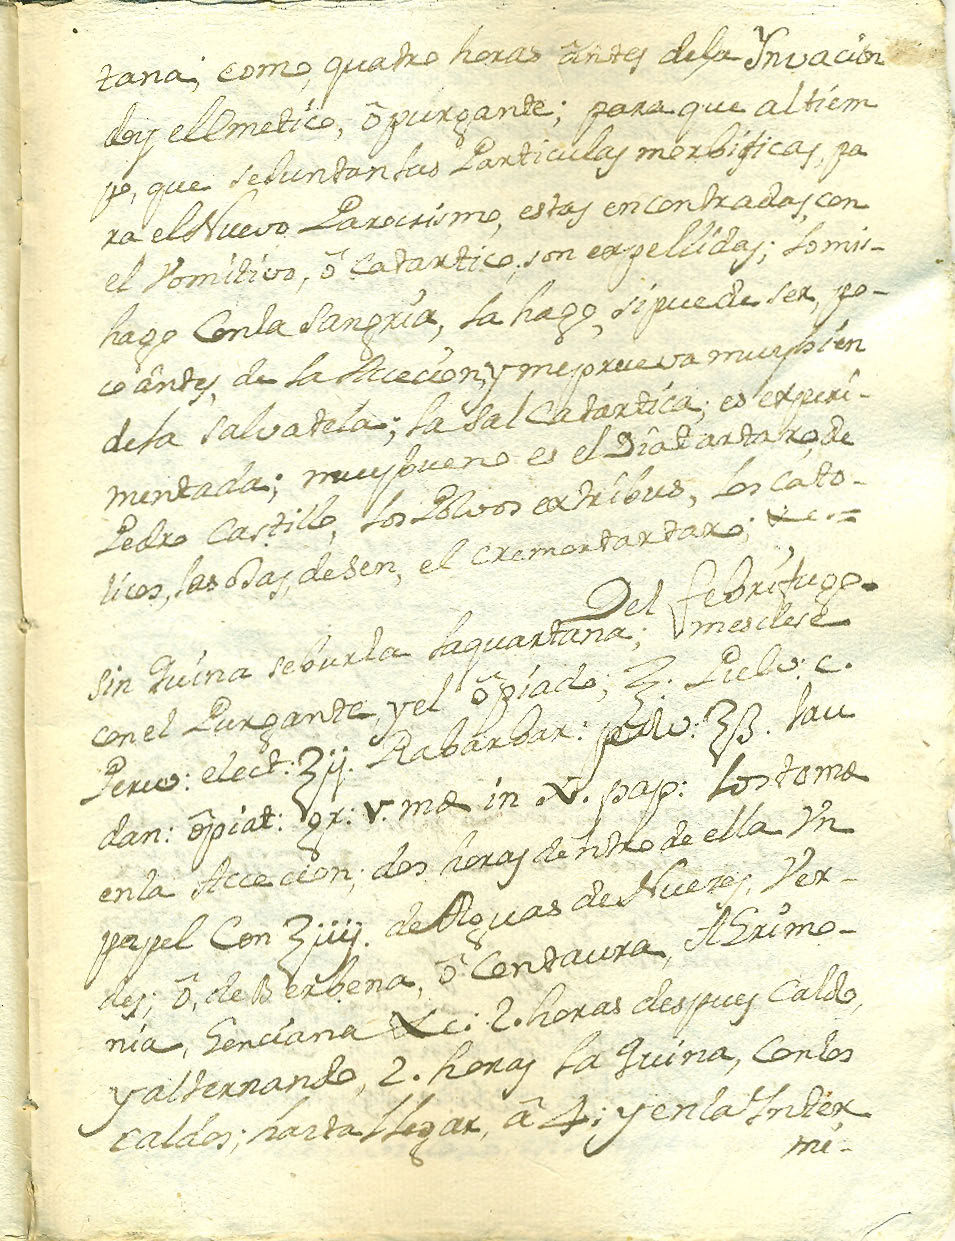 tana; como, quatro horas ântes dela Ynvacion
doy el Emetico, ô purgante; para que al tiem
po, que se Juntan las Particulas morbificas, pa
ra el Nuevo Parocismo, estas encontradas, con
el Vomitivo, ô Catartico, son expellidas; lo mis-
hago Con la Sangria, la hago, si puede ser, po-
co ântes, de la Accecion, y me prueva muy bien
de la Salvatela; la Sal Catartica; es experi-
mentada; muy bueno es el Diatartaro, de
Pedro Castillo, los Polvos extribus, los Cato-
licos, las de Sen, el cremortartaro; &c.=
Del febrifugo.
sin Quina se burla la quartana; mesclese
con el Purgante, y el ôpiado; ℞. Pulv: c.
Peruv: elect: ʒij. Rabarbar: pulv: ʒß. lau
dan: ôpiat: gr: v. mæ in .v. pap: los toma
en la Accecion; dos horas dêntro de ella Vn
papel Con ʒiiij. de Aguas de Nueces, Ver-
des; ô, de Berbena, ô Centaura, AGrimo-
nia, Genciana &c: 2. horas despues Caldo,
y alternando, 2. horas la Quina, Con los
caldos; hasta llegar, â 4; y en la Ynter
mi-